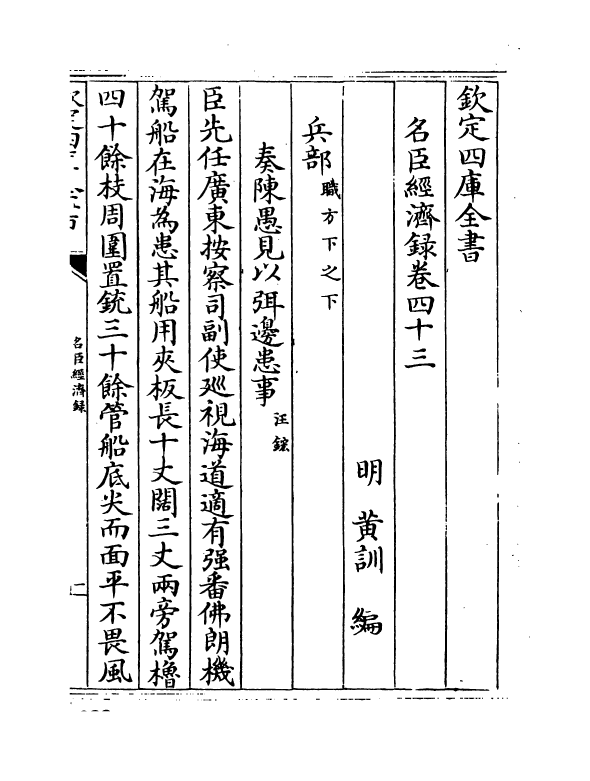 欽定四庫全書
名臣經濟録卷四十三
明 黄訓 編
兵部職方下之下
奏陳愚見以弭邊患事汪鋐
臣先任廣東按察司副使廵視海道適有强番佛朗機
駕船在海為患其船用夾板長十丈闊三丈兩旁駕櫓
四十餘枝周圍置銃三十餘管船底尖而面平不畏風
名臣經濟録